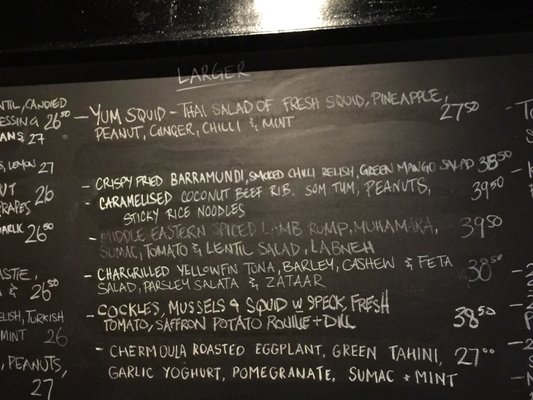 LARGER
NTIL, CANDIED
ESSING 26⁵⁰
ANS 27
LEMON 27
UT
RAPES 26
GARLIC 26⁵⁰
ASTIE,
& 26⁵⁰
ELISH, TURKISH
MINT 26
, PEANUTS,
27
- YUM SQUID - THAI SALAD OF FRESH SQUID, PINEAPPLE, 27⁵⁰
PEANUT, GINGER, CHILLI & MINT
- CRISPY FRIED BARRAMUNDI, SMOKED CHILLI RELISH, GREEN MANGO SALAD 38⁵⁰
- CARAMELISED COCONUT BEEF RIB, SOM TUM, PEANUTS, 39⁵⁰
STICKY RICE NOODLES
- MIDDLE EASTERN SPICED LAMB RUMP, MUHAMARA, 39⁵⁰
SUMAC, TOMATO & LENTIL SALAD, LABNEH
- CHARGRILLED YELLOWFIN TUNA, BARLEY, CASHEW & FETA 38⁵⁰
SALAD, PARSLEY SALATA & ZATAAR
- COCKLES, MUSSELS & SQUID W SPECK, FRESH 38⁵⁰
TOMATO, SAFFRON POTATO ROUILLE + DILL
- CHERMOULA ROASTED EGGPLANT, GREEN TAHINI, 27⁰⁰
GARLIC YOGHURT, POMEGRANATE, SUMAC + MINT